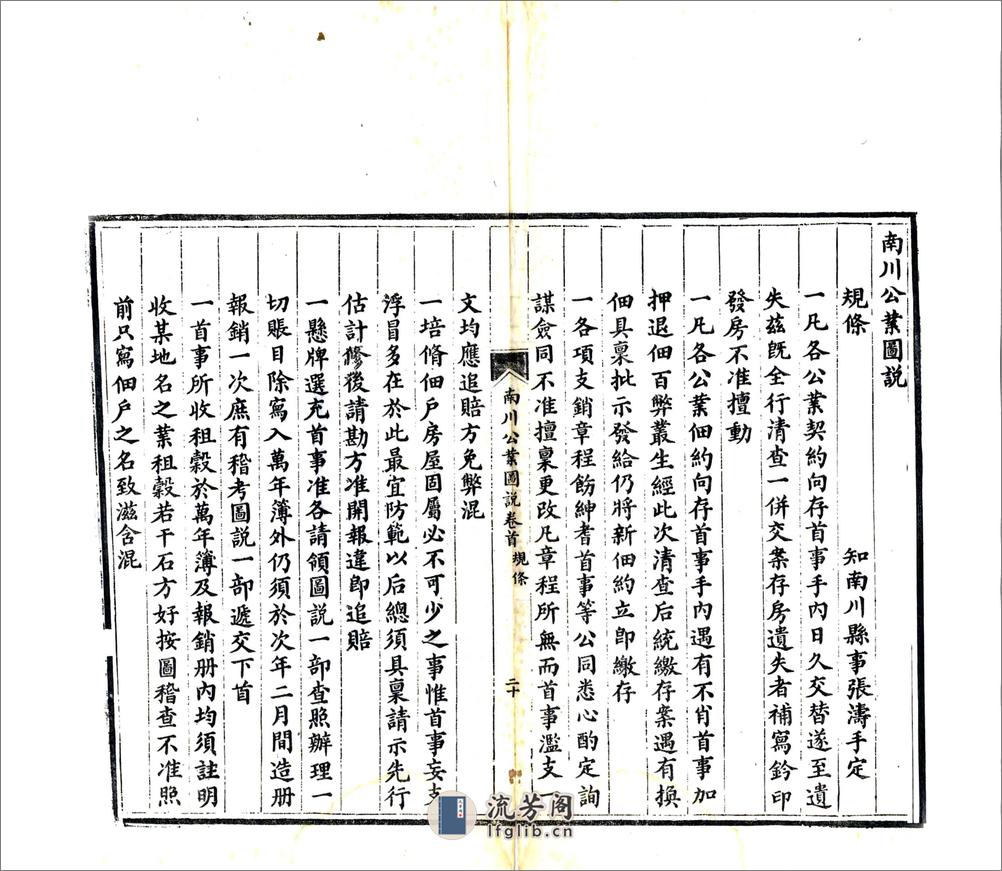 南川公業圖説
規條　知南川縣事張濤手定
一凡各公業契約向存首事手內日久交替遂至遺
失茲旣全行清查一併交案存房遺失者補寫鈐印
發房不准擅動
一凡各公業佃約向存首事手內遇有不肖首事加
押退佃百弊叢生經此次清查后統繳存案遇有換
佃具稟批示發給仍將新佃約立卽繳存
一各項支銷章程飭紳耆首事等公同悉心酌定詢
謀僉同不准擅稟更改凡章程所無而首事濫支
南川公業圖説卷首 規條 二十
文均應追賠方免弊混
一培脩佃戶房屋固屬必不可少之事惟首事妄支
浮冒多在於此最宜防範以后總須具稟請示先行
估計修後請勘方准開報違卽追賠
一懸牌選充首事准各請領圖説一部查照辦理一
切賬目除寫入萬年簿外仍須於次年二月間造册
報銷一次庶有稽考圖説一部遞交下首
一首事所收租穀於萬年簿及報銷册內均須註明
收某地名之業租穀若干石方好按圖稽查不准照
前只寫佃戶之名致滋含混
流芳阁
lfglib.cn